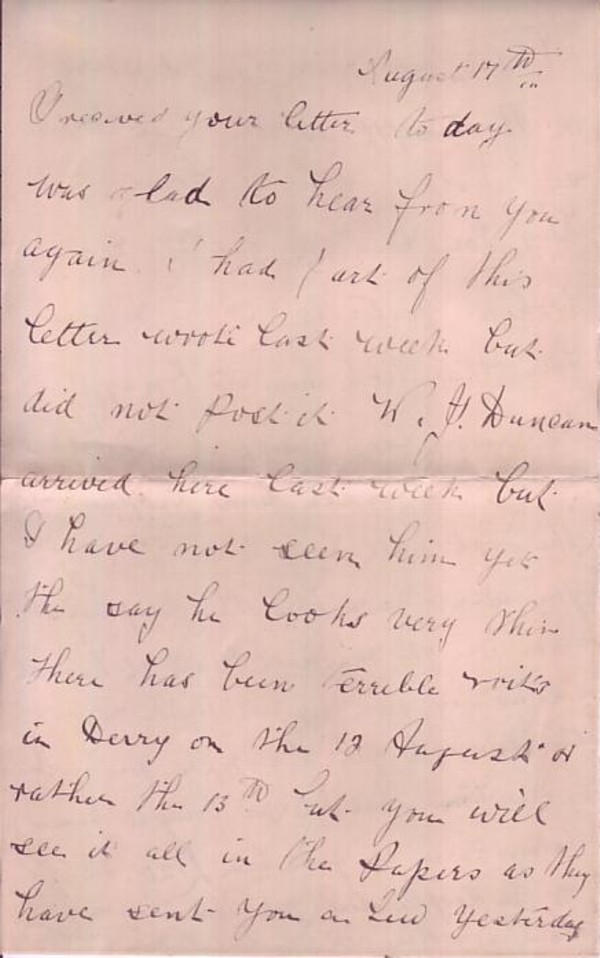 August 17th
I received your letter to day
was glad to hear from you
again I had part of this
letter wrote last week but
did not Post it W. J. Duncan
arrived here last week but
I have not seen him yet
the say he looks very thin
there has been terrible roits
in Derry on the 12 August or
rather the 13th but you will
see it all in the Papers as they
have sent you a Yesterday